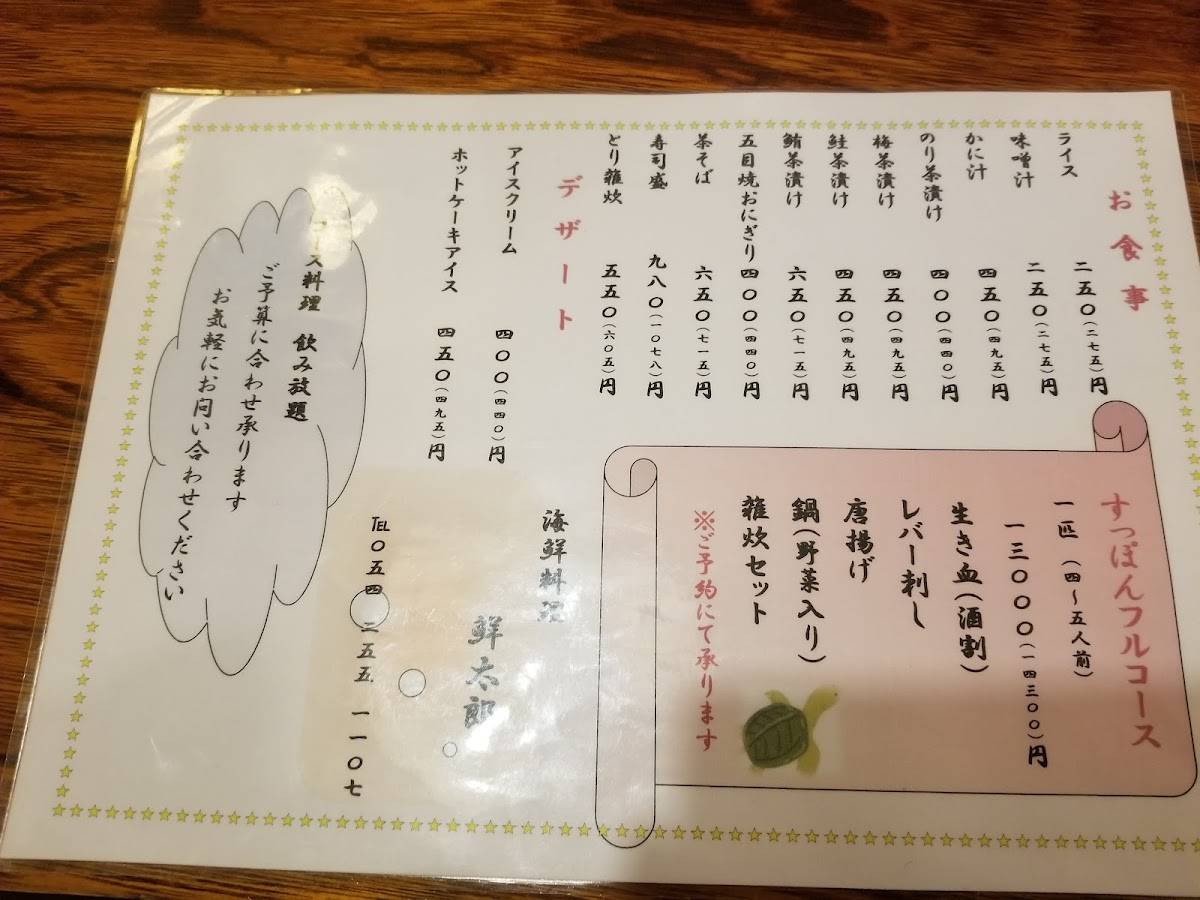 お食事
ライス 二五〇(二七五)円
味噌汁 二五〇(二七五)円
かに汁 四五〇(四九五)円
のり茶漬け 四〇〇(四四〇)円
梅茶漬け 四五〇(四九五)円
鮭茶漬け 四五〇(四九五)円
鮪茶漬け 六五〇(七一五)円
五目焼おにぎり 四〇〇(四四〇)円
茶そば 六五〇(七一五)円
寿司盛 九八〇(一〇七八)円
とり雑炊 五五〇(六〇五)円
デザート
アイスクリーム 四〇〇(四四〇)円
ホットケーキアイス 四五〇(四九五)円
すっぽんフルコース
一匹(四~五人前)
一三〇〇〇(一四三〇〇)円
生き血(酒割)
レバー刺し
唐揚げ
鍋(野菜入り)
雑炊セット
※ご予約にて承ります
コース料理 飲み放題
ご予算に合わせ承ります
お気軽にお問い合わせください
海鮮料理
鮮太郎
℡〇五四 二五五 一一〇七